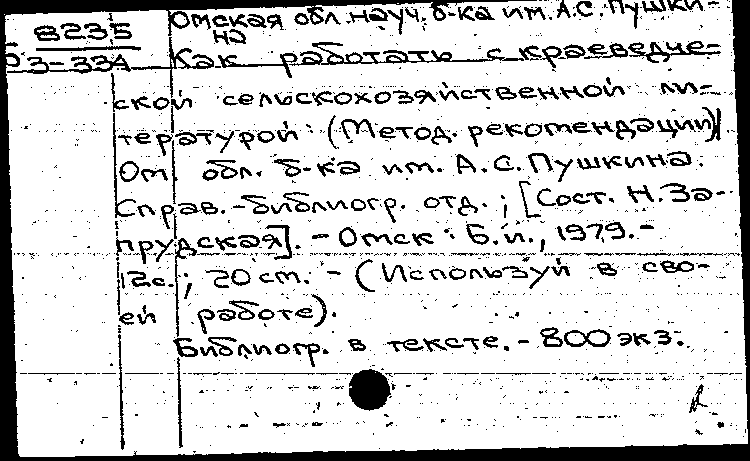 8235 Омская обл. науч. б-ка им. А.С. Пушки-
на
Б3-334 Как работать с краеведче-
ской сельскохозяйственной ли-
тературой: (Метод. рекомендации)/
Ом. обл. б-ка им. А.С. Пушкина.
Справ.-библиогр. отд.; [Сост. Н. За-
прудская]. - Омск: Б.и., 1979. -
12с.; 20 см. - (Используй в сво-
ей работе).
Библиогр. в тексте. - 800 экз.